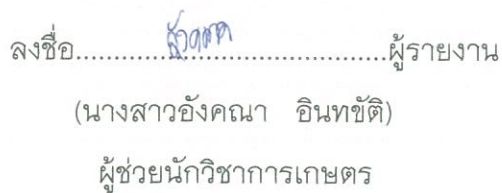 ลงชื่อ..........................................ผู้รายงาน
(นางสาวอังคณา อินทขัติ)
ผู้ช่วยนักวิชาการเกษตร